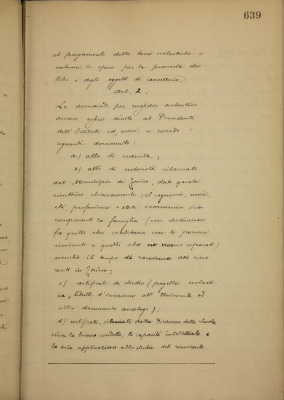 639
al pagamento delle tasse scolastiche e
per la provvista dei
libri e degli oggetti di cancelleria.
Art. 2.
Le domande per sussidio scolastico
dovranno dirette al Presidente
dell'Istituto ed unire a corredo i
seguenti documenti:
a) atto di nascita;
b) atto di notorietà rilasciato
dal Municipio di Torino, dal quale
risultino chiaramente, il cognome, nome,
età, professione e stato economico dei
componenti la famiglia (con distinzione
fra quelli che convivono con le persone
e quelli che vivono separati)
nonchè il tempo di residenza del
in Torino;
c) certificati di studio (pagelle scolasti-
che, libretto d'iscrizione all'Università od
altro documento analogo);
d) certificato, rilasciato dalla Direzione della Scuola
la buona condotta, le capacità intellettuali e
la sua applicazione allo studio del